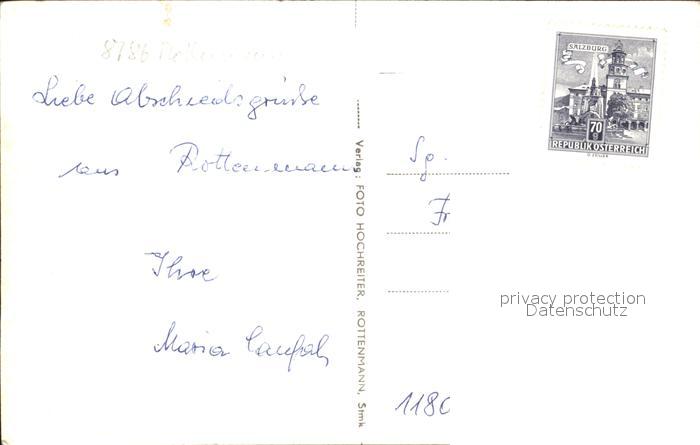 8786
Liebe Abschiedsgrüße
aus Rottenmann
Ihre
Maria
Verlag: FOTO HOCHREITER, ROTTENMANN, Stmk
SALZBURG
70 g
REPUBLIK ÖSTERREICH
Sg.
Fr
privacy protection
Datenschutz
1180